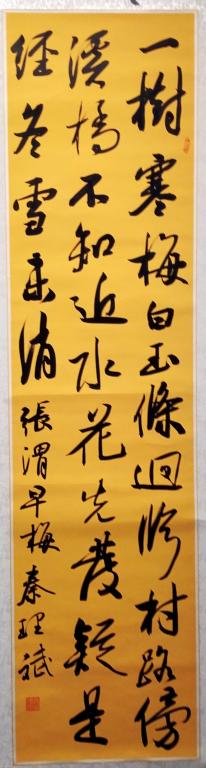 一樹寒梅白玉條迥臨村路傍
溪橋不知近水花先發疑是
經冬雪未消張渭早梅秦理斌